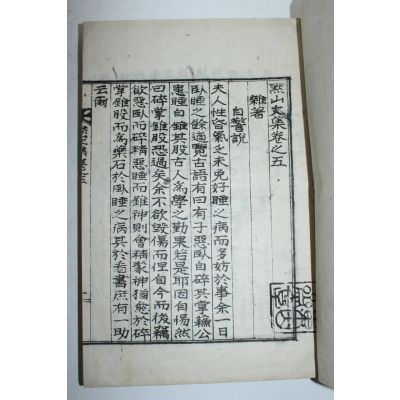 點山文集卷之五
雜著
自警說
夫人性皆氣之未免好睡之病而多妨於事余一日
臥睡之餘適覽古語有曰有子惡臥自碎其掌蘇公
惡睡自錐其股古人爲學之勤果若是耶因自惕然
曰碎掌錐股恐過矣余不欲毀傷而但自今而後竊
欲惡臥而碎精惡睡而錐神則會精聚神猶愈於碎
掌錐股而爲藥石於臥睡之病其於看書庶有一助
云爾